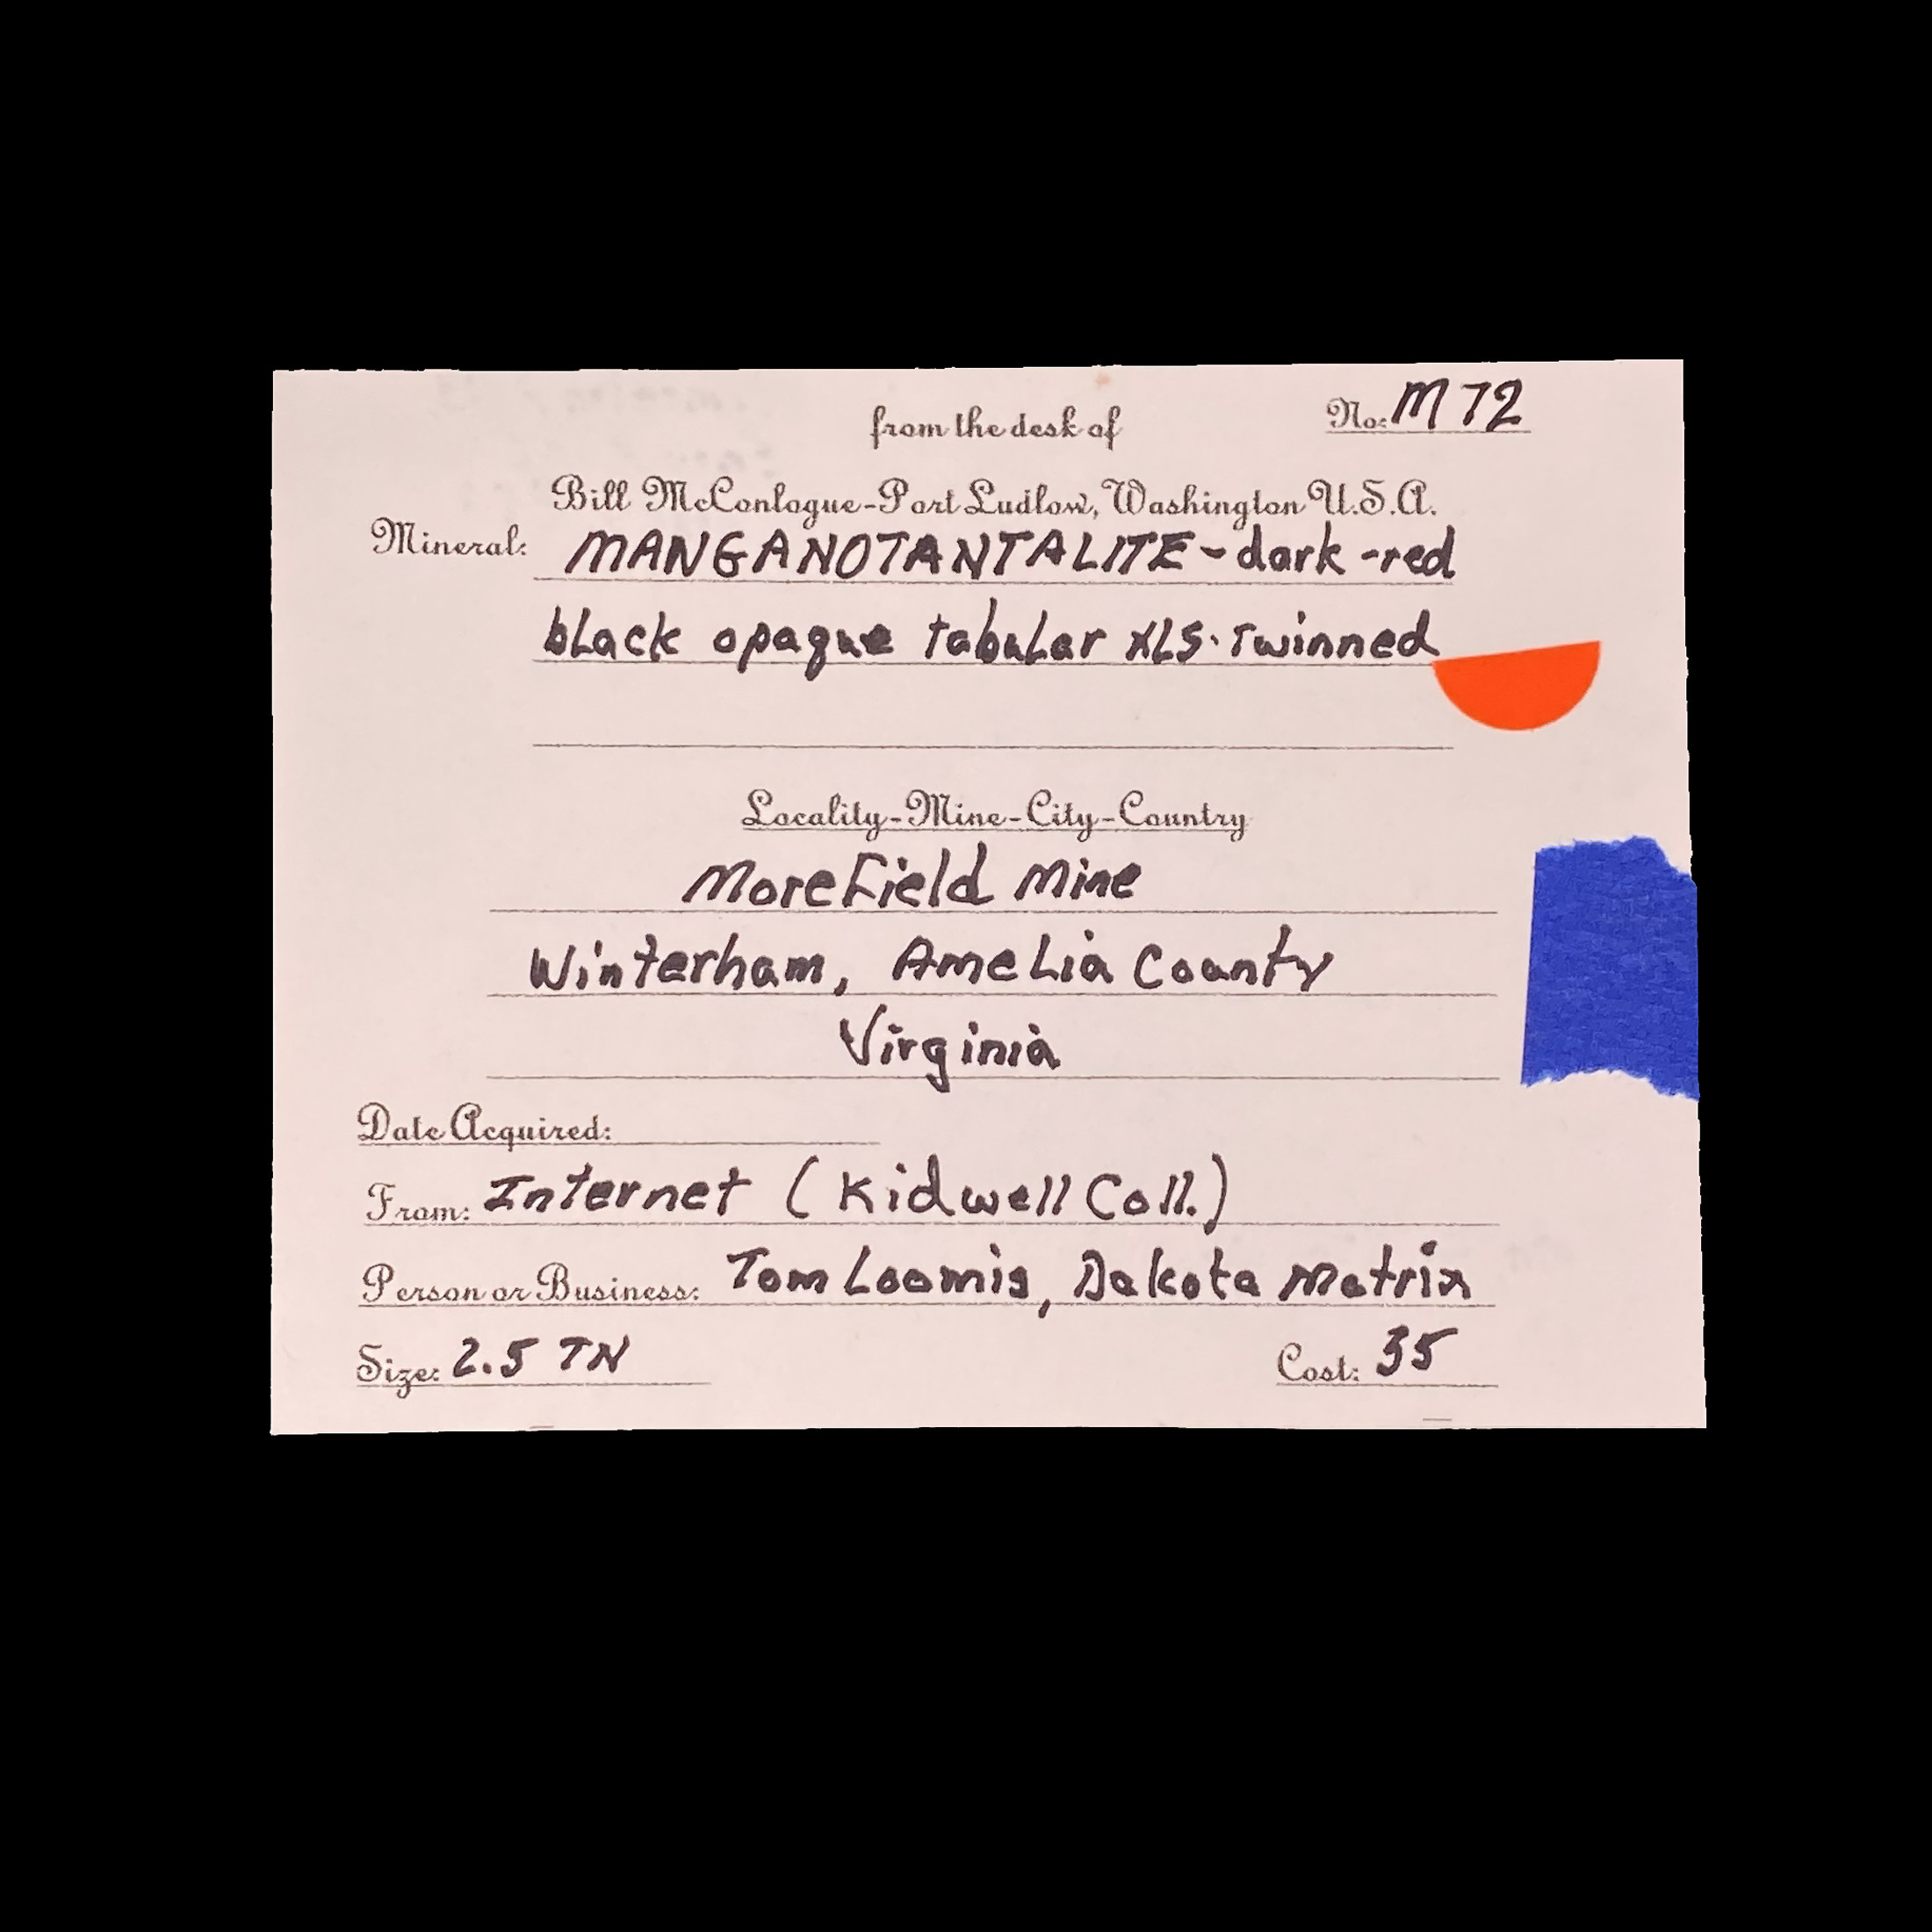 from the desk of
No: M 72
Bill McConlogue-Port Ludlow, Washington U.S.A.
Mineral: MANGANOTANTALITE - dark - red
black opaque tabular XLS. Twinned
Locality-Mine-City-Country
Morefield Mine
Winterham, Amelia County
Virginia
Date Acquired:
From: Internet (Kidwell Coll.)
Person or Business: Tom Loomis, Dakota Matrix
Size: 2.5 TN
Cost: 35